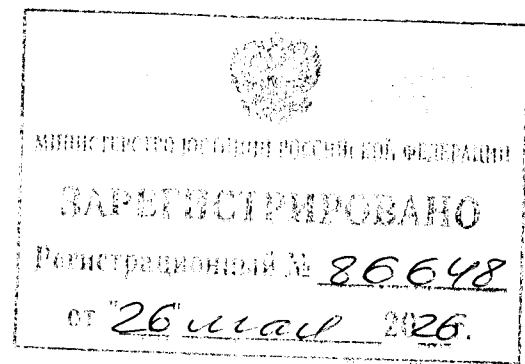 МИНИСТЕРСТВО ЮСТИЦИИ РОССИЙСКОЙ ФЕДЕРАЦИИ
ЗАРЕГИСТРИРОВАНО
Регистрационный № 86648
от "26" мая 2026г.